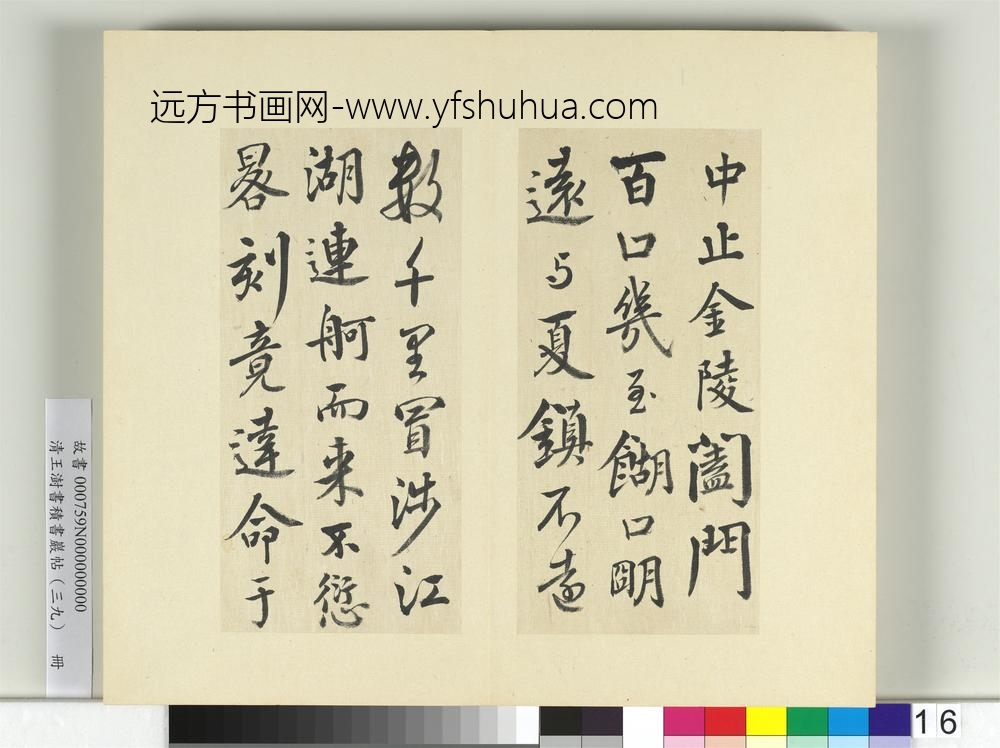 远方书画网-www.yfshuhua.com
中止金陵闔門
百口幾至餬口明
遠与夏鎮不遠
數千里冒涉江
湖連舸而来不愆
晷刻竟達命于
故書 000759N000000000
清王澍書積書巖帖（三九） 冊
16